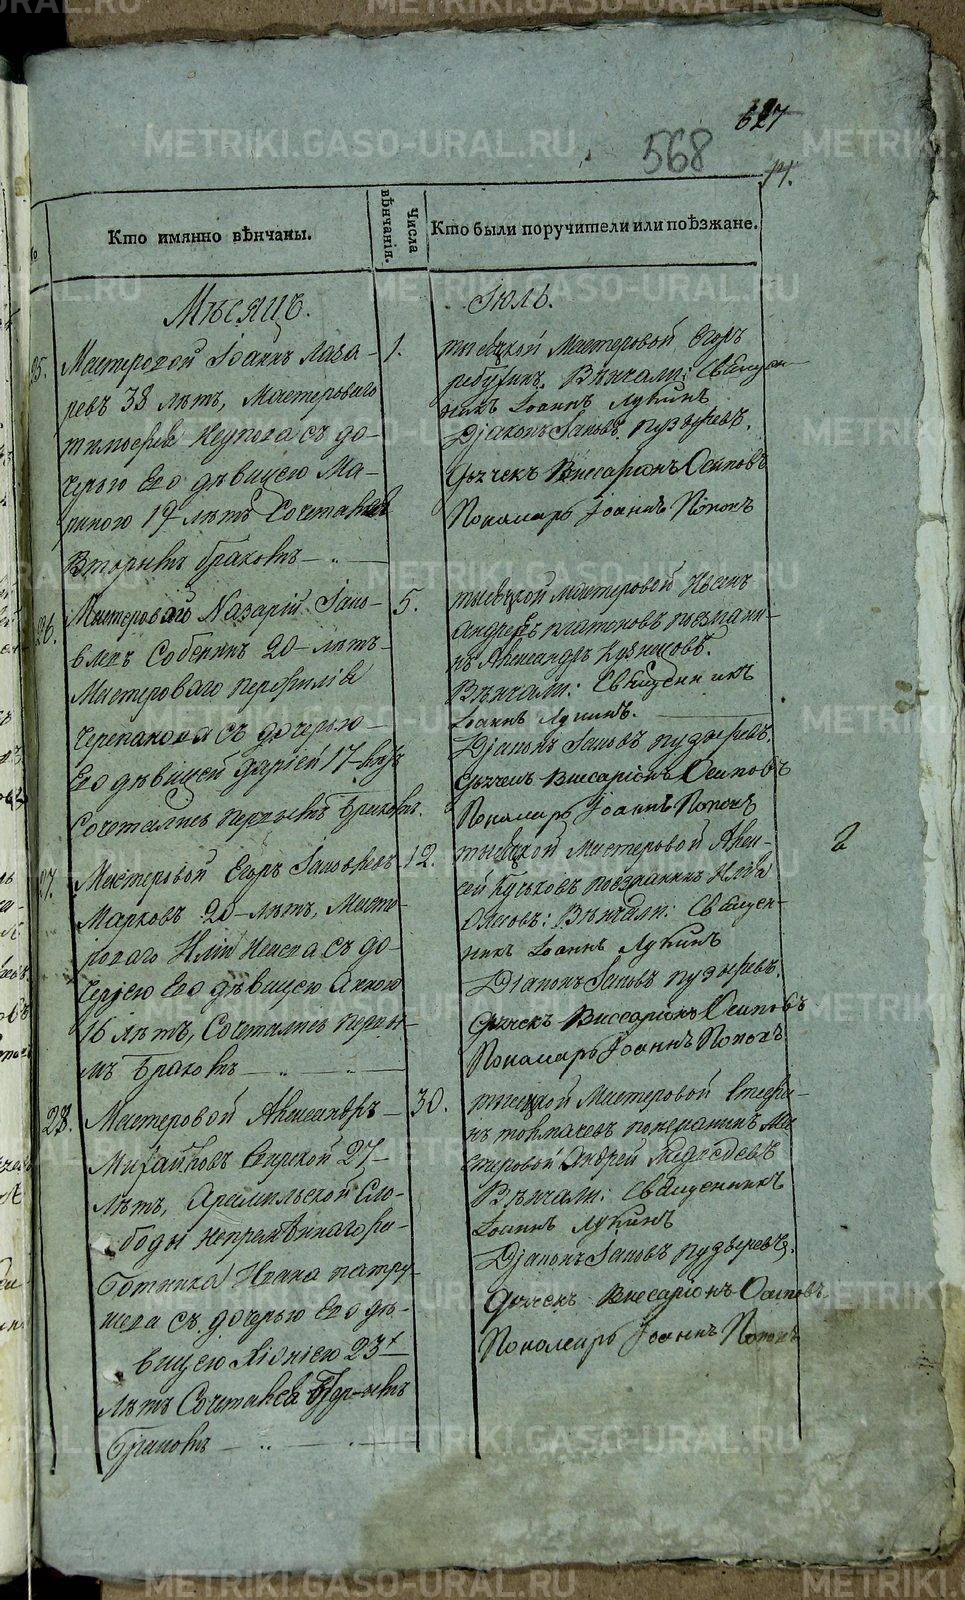 627
568
14.
Кто имянно вѣнчаны.
Числа вѣнчанія.
Кто были поручители или поѣзжане.
Мѣсяцъ.
Іюль.
25.
Мастеровой Іоаннъ Лаза-
ревъ 38 лѣтъ, Мастероваго
съ до-
черью Его дѣвицею Ма-
риною 19 лѣтъ Сочетался
Вторымъ бракомъ
1.
тысяцкой Мастеровой Егоръ
Вѣнчали: Священ-
никъ Іоаннъ Лукинъ
Діаконъ Іаковъ Пузыревъ.
Дьячекъ Виссаріонъ Осиповъ
Пономарь Іоаннъ Поповъ
26.
Мастероваго Назарій Іако-
влевъ 20 лѣтъ
Мастероваго Перфилія
Черепанова съ дочерью
Его дѣвицей Даріей 17
Сочетались первымъ бракомъ.
5.
тысяцкой мастеровой
Андреевъ Платоновъ поезжани-
нъ Александръ Кузнецовъ.
Вѣнчали: Священникъ
Іоаннъ Лукинъ.
Діаконъ Іаковъ Пузыревъ.
Дьячекъ Виссаріонъ Осиповъ
Пономарь Іоаннъ Поповъ
27.
Мастеровой Егоръ Іаковлевъ
Марковъ 20 лѣтъ, Масте-
роваго съ до-
черію Его дѣвицею Анною
16 лѣтъ, Сочетались первы-
мъ бракомъ
12.
тысяцкой Мастеровой Алек-
сей поезжанинъ Илья
Вѣнчали: Священ-
никъ Іоаннъ Лукинъ
Діаконъ Іаковъ Пузыревъ.
Дьячекъ Виссаріонъ Осиповъ
Пономарь Іоаннъ Поповъ
28.
Мастеровой Александръ
Михайловъ 27
лѣтъ, Арамильской Сло-
боды непремѣннаго ра-
ботника Ивана Патру-
шева съ дочерью Его дѣ-
вицею 23
лѣтъ Сочетался
бракомъ
30.
тысяцкой Мастеровой Стефа-
нъ Токмачевъ поезжанинъ Ма-
стеровой Андрей
Вѣнчали: Священникъ
Іоаннъ Лукинъ
Діаконъ Іаковъ Пузыревъ.
Дьячекъ Виссаріонъ Осиповъ
Пономарь Іоаннъ Поповъ
METRIKI.GASO-URAL.RU